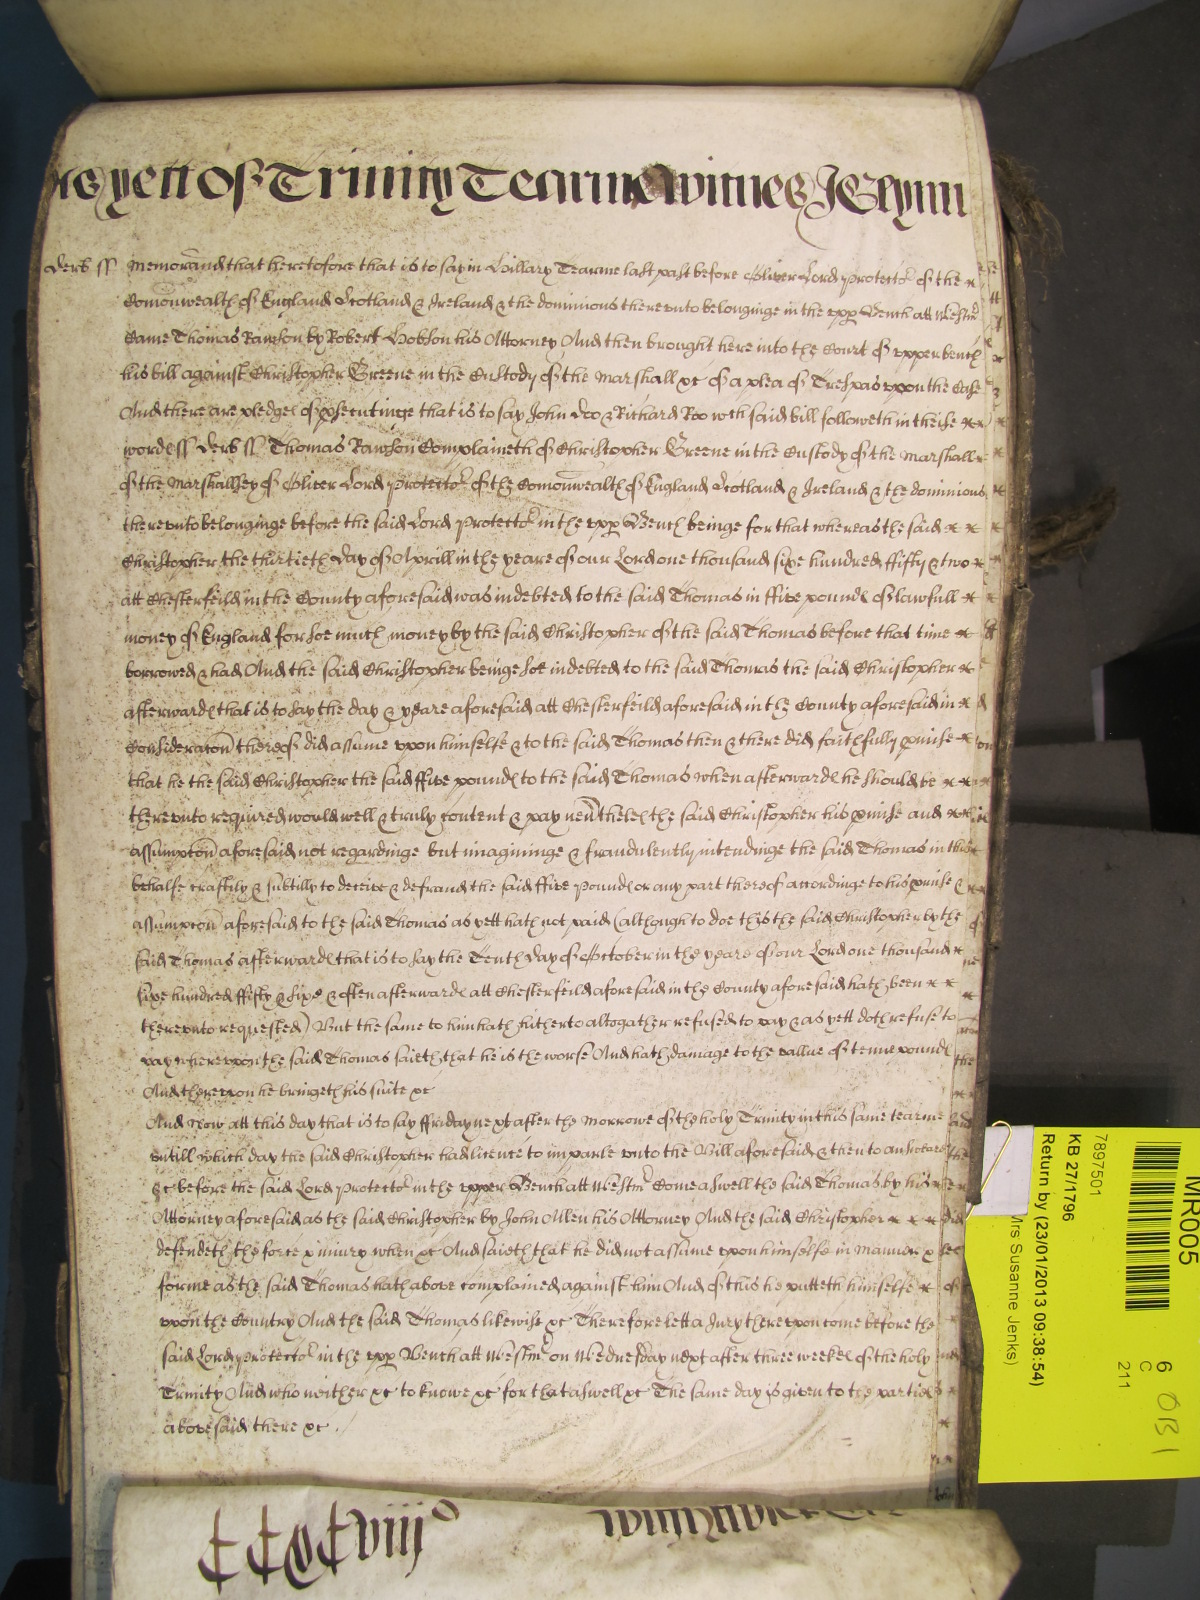 as yett of Trinity Tearme Witnes J Glynn
Derb ss Memorand that heretofore that is to say in Hillary Tearme last past before Oliver Lord Protector of the
Comonwealth of England Scotland & Ireland & the dominions thereunto belonginge in the upp Bench att Westmr
Came Thomas Rawson by Robert Hobson his Attorney And then brought here into the Court of upper bench
his bill against Christopher Greene in the Custody of the Marshall &c of a plea of Trespas upon the Case
And there are pledges of psecutinge that is to say John Doo & Richard Roo wch said bill followeth in theise
wordes ss Derb ss Thomas Rawson Complaineth of Christopher Greene in the Custody of the Marshall
of the Marshallsey of Oliver Lord Protector of the Comonwealth of England Scotland & Ireland & the dominions
thereunto belonginge before the said Lord Protector in the upp Bench beinge for that whereas the said
Christopher the thirtieth day of Aprill in the yeare of our Lord one thousand sixe hundred ffifty & two
att Chesterfeild in the County aforesaid was indebted to the said Thomas in ffive poundes of lawfull
money of England for soe much money by the said Christopher of the said Thomas before that time
borrowed & had And the said Christopher beinge soe indebted to the said Thomas the said Christopher
afterwardes that is to say the day & yeare aforesaid att Chesterfeild aforesaid in the County aforesaid in
Consideracon thereof did assume upon himselfe & to the said Thomas then & there did faithfully pmise
that he the said Christopher the said ffive poundes to the said Thomas when afterwardes he should be
thereunto required would well & truly content & pay nevthelesse the said Christopher his pmise and
assumpcon aforesaid not regardinge but imagininge & fraudulently intendinge the said Thomas in this
behalfe craftily & subtilly to deceive & defraud the said ffive poundes or any part thereof accordinge to his pmise &
assumpcon aforesaid to the said Thomas as yett hath not paid (although to doe this the said Christopher by the
said Thomas afterwardes that is to say the Tenth day of October in the yeare of our Lord one thousand
sixe hundred ffifty & sixe & often afterwardes att Chesterfeild aforesaid in the County aforesaid hath been
thereunto requested) But the same to him hath hitherto altogather refused to pay & as yett doth refuse to
pay whereupon the said Thomas saieth that he is the worse And hath damage to the vallue of tenne poundes
And thereupon he bringeth his suite &c
And Now att this day that is to say ffriday next after the Morrowe of the holy Trinity in this same tearme
untill which day the said Christopher had licence to imparle unto the Bill aforesaid & then to answeare
&c before the said Lord Protector in the upper Bench att Westmr Come aswell the said Thomas by his
Attorney aforesaid as the said Christopher by John Allen his Attorney And the said Christopher
defendeth the force & iniury when &c And saieth that he did not assume upon himselfe in manner &
forme as the said Thomas hath above complained against him And of this he putteth himselfe
upon the Country And the said Thomas likewise &c Therefore lett a Jury thereupon come before the
said Lord Protector in the upp Bench att Westmr on Wednesday next after three weekes of the holy
Trinity And who neither &c to knowe &c for that aswell &c The same day is given to the parties
abovesaid there &c
MR005
7897501
KB 27/1796
Return by (23/01/2013 09:38:54)
Mrs Susanne Jenks)
6
C
211